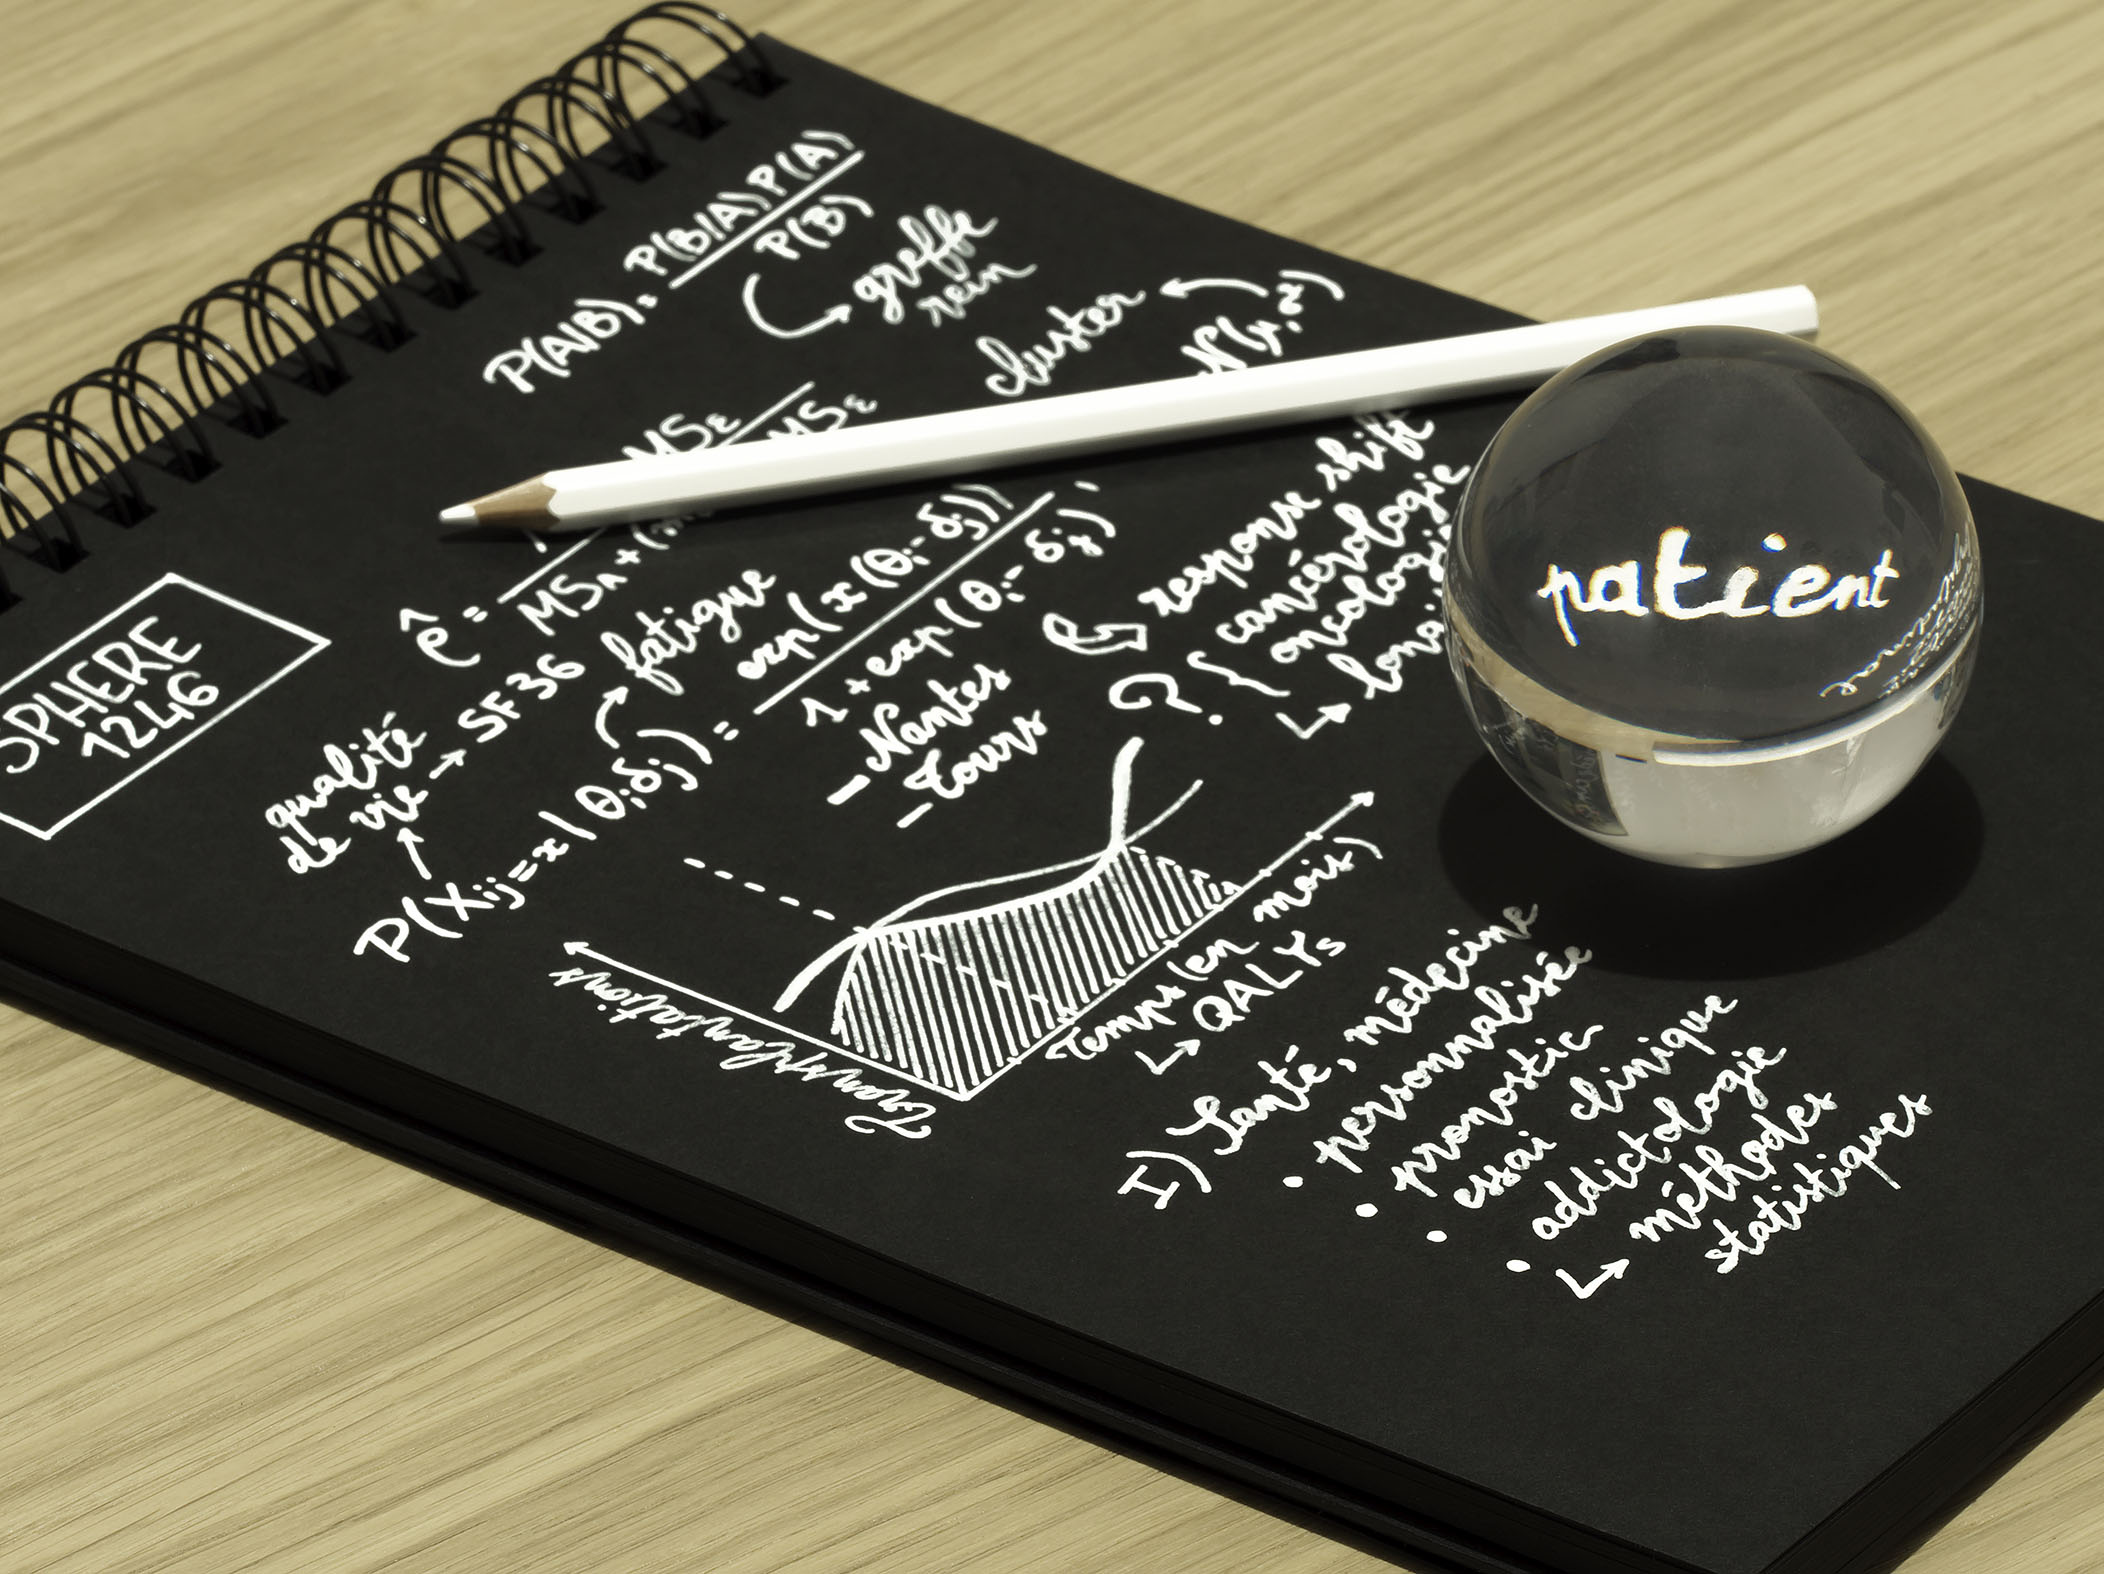 P(A|B) = P(B|A) P(A)
P(B)
greffe
rein
cluster
MSε
MSε
MSA + (
SPHERE
1246
qualité
de vie → SF36
fatigue
P(Xij=x|θiδj) = exp(x(θi-δj))
1+exp(θi-δj)
- Nantes
- Tours
response shift
? { cancérologie
oncologie
patient
Transplantations
Temps (en mois)
↳ QALYs
I) Santé, médecine
• personnalisée
• pronostic
• essai clinique
• addictologie
↳ méthodes
statistiques